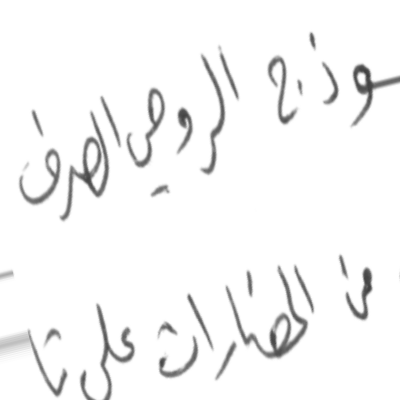 الروحي الصرف
من الحضارات على